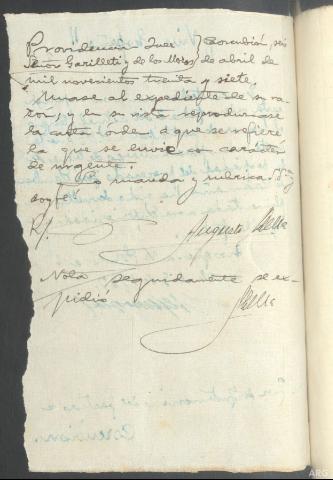 Providencia Juez } Corcubión, seis
Señor Garilleti y de los Mozos } de abril de
mil novecientos treinta y siete.
Unase al expediente de su ra-
zón, y en su vista reprodúzcase
la carta orden a que se refiere
la que se envie co carácter
de urgente.
Lo manda y rubrica SSª y
doy fé
R/.
Augusto
Nota seguidamente se ex-
pidió
Corcubión.
ARG